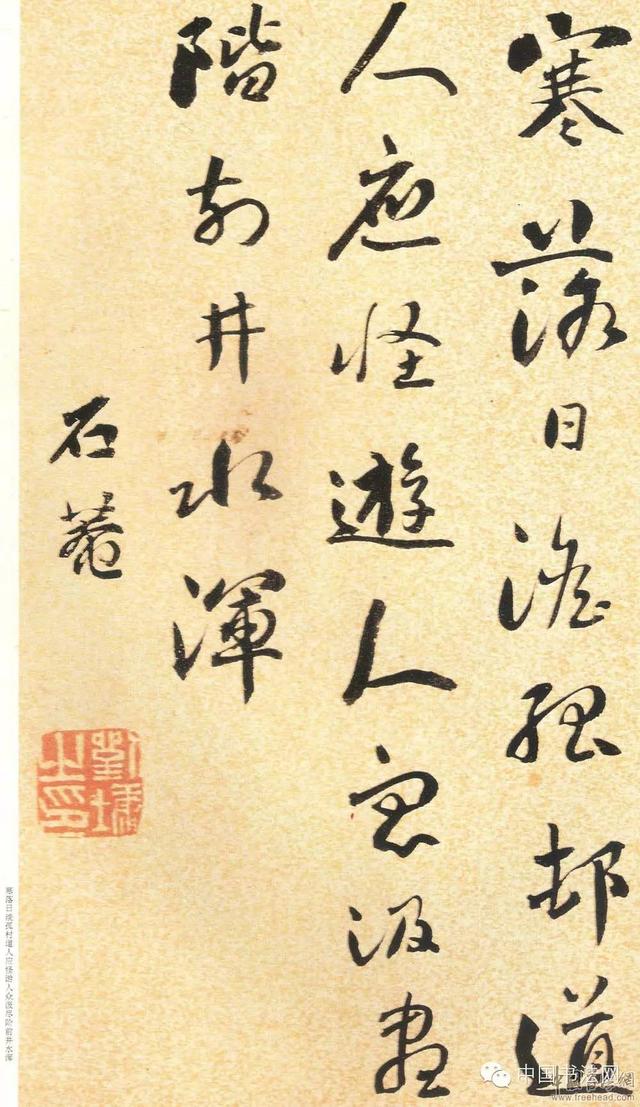 寒落日澹孤邨道
人應怪遊人衆汲盡
階前井水渾
石菴
劉墉之印
寒落日淡孤村道人应怪游人众汲尽阶前井水浑
中国书法网
www.freehead.com